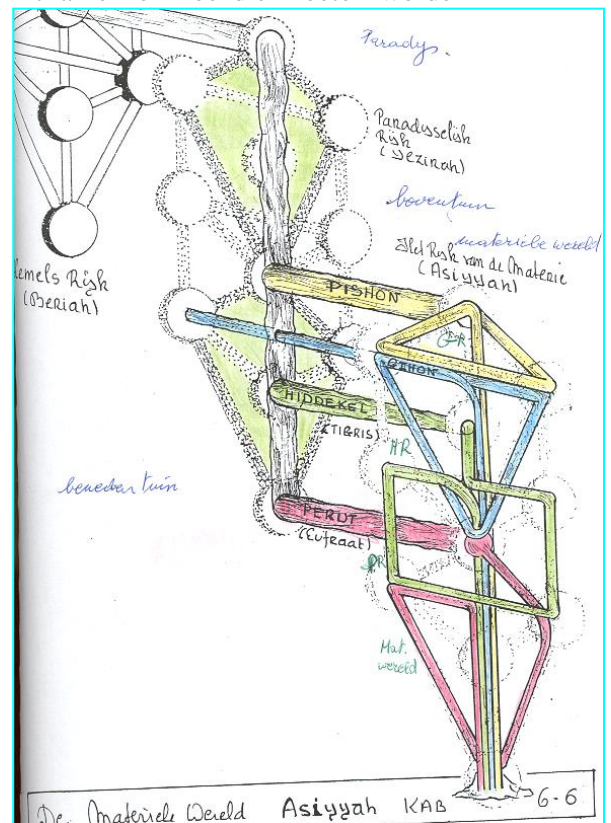 Paradys.
Paradysselijk
Rijk
(Yezirah)
boventuin
materiele wereld
Het Rijk van de Materie
(Asiyyah)
Hemels Rijk
(Beriah)
PISHON
GIHON
HIDDEKEL
(TIGRIS)
AR
benedentuin
PERUT
(Eufraat)
PR
Mat.
wereld
De Materiele Wereld Asiyyah KAB 6-6